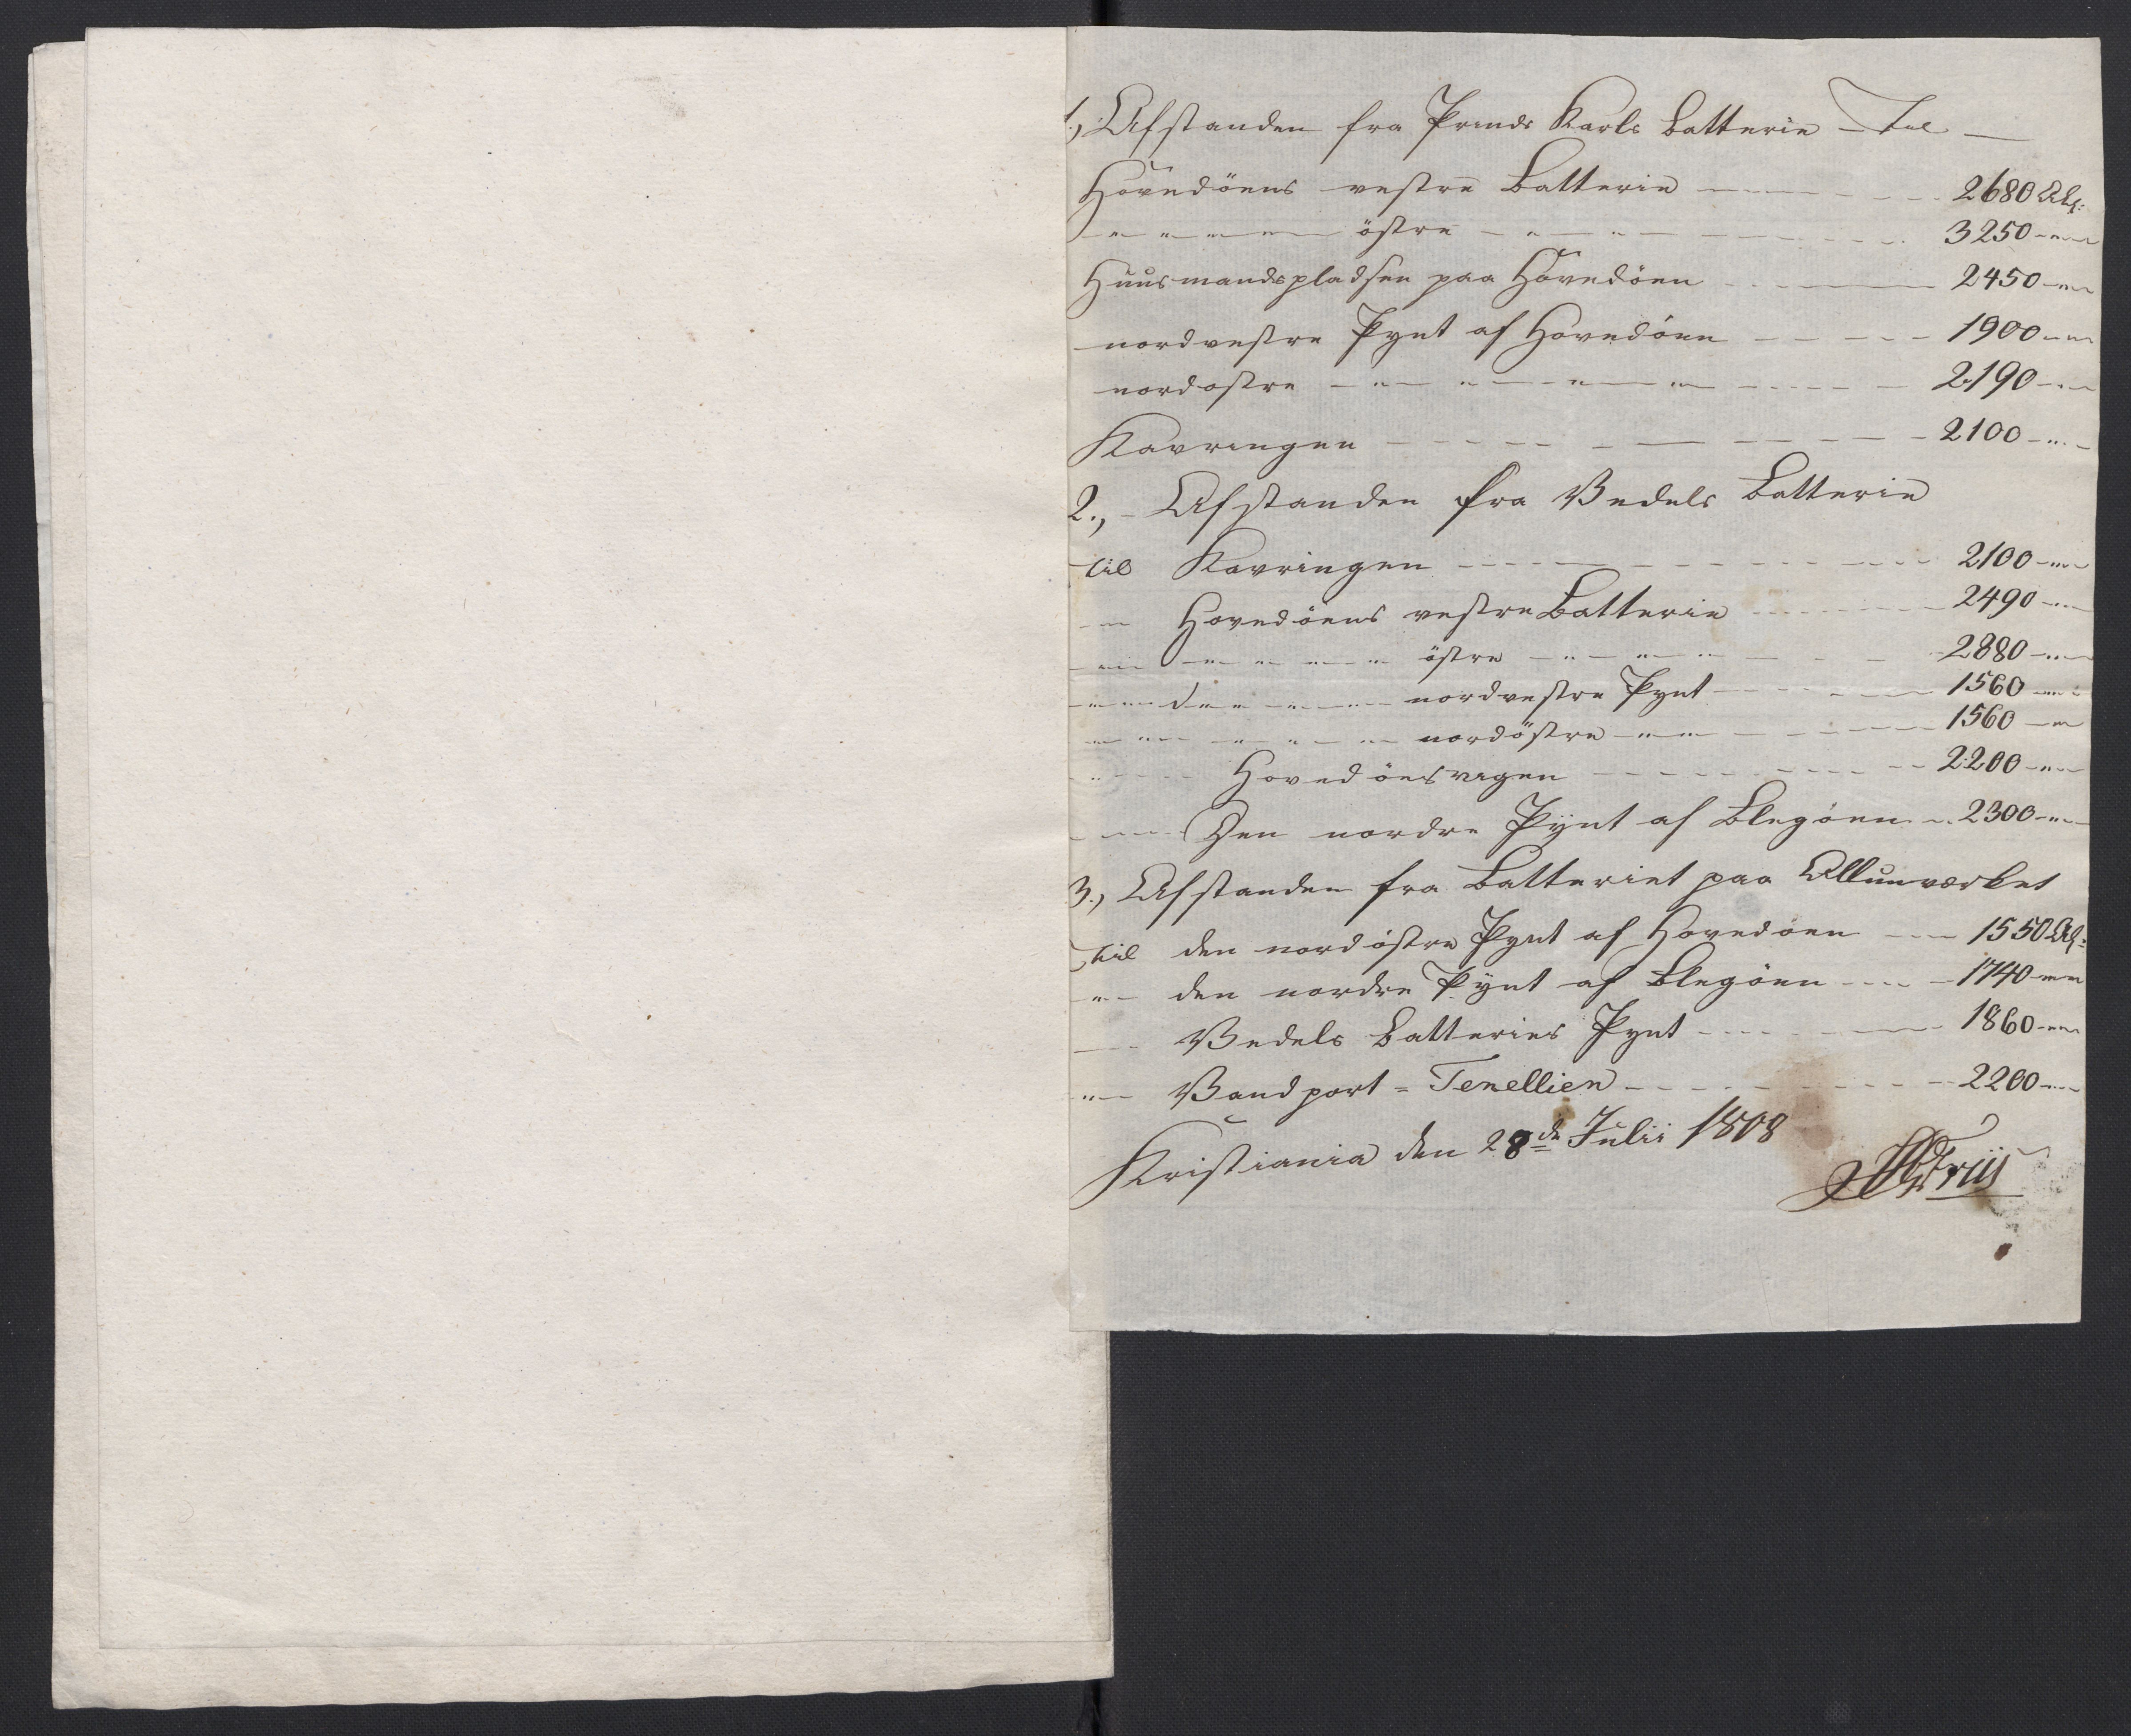 1., Afstanden fra Prinds Karls Batterie - Til -
Hovedöens vestre Batterie - - - - 2680 Al:
- " - " - " - östre - " - " - - - - 3250 - " -
Huusmandspladsen paa Hovedöen - - - 2450 - " -
nordvestre Pynt af Hovedöen - - - - - 1900 - " -
nordostre - " - " - " - " - - - - 2190 - " -
Kavringen - - - - - - - - - - 2100 - " -
2., - Afstanden fra Vedels Batterie
til Kavringen - - - - - - - - 2100 - " -
- " - Hovedöens vestre Batterie - - - - 2490 - " -
- " - " - " - " - östre - " - " - - - - 2880 - " -
- " - " - " - " - nordvestre Pynt - - - - 1560 - " -
- " - " - " - " - nordöstre - " - - - - 1560 - " -
- " - - - Hovedöesvigen - - - - - - - 2200 - " -
- - - Den nordre Pÿnt af Blegöen - - 2300 - " -
3., Afstanden fra Batteriet paa Allunværket
til den nordöstre Pynt af Hovedöen - - 1550 Al:
- " - den nordre Pÿnt af Blegöen - - - - 1740 - " -
- - - Vedels Batteries Pynt - - - - - 1860 - " -
- " - Vandport = Tenellien - - - - - - - 2200 - " -
Kristiania den 28de Julii 1808
Friis